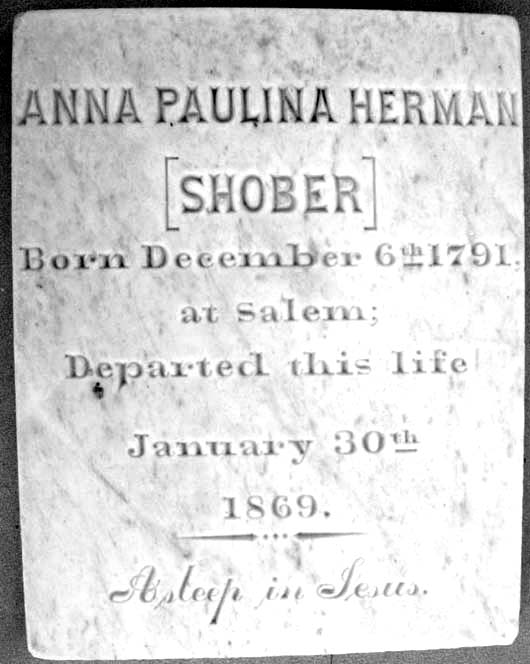 ANNA PAULINA HERMAN
[SHOBER]
Born December 6th 1791,
at Salem;
Departed this life
January 30th
1869.
Asleep in Jesus.